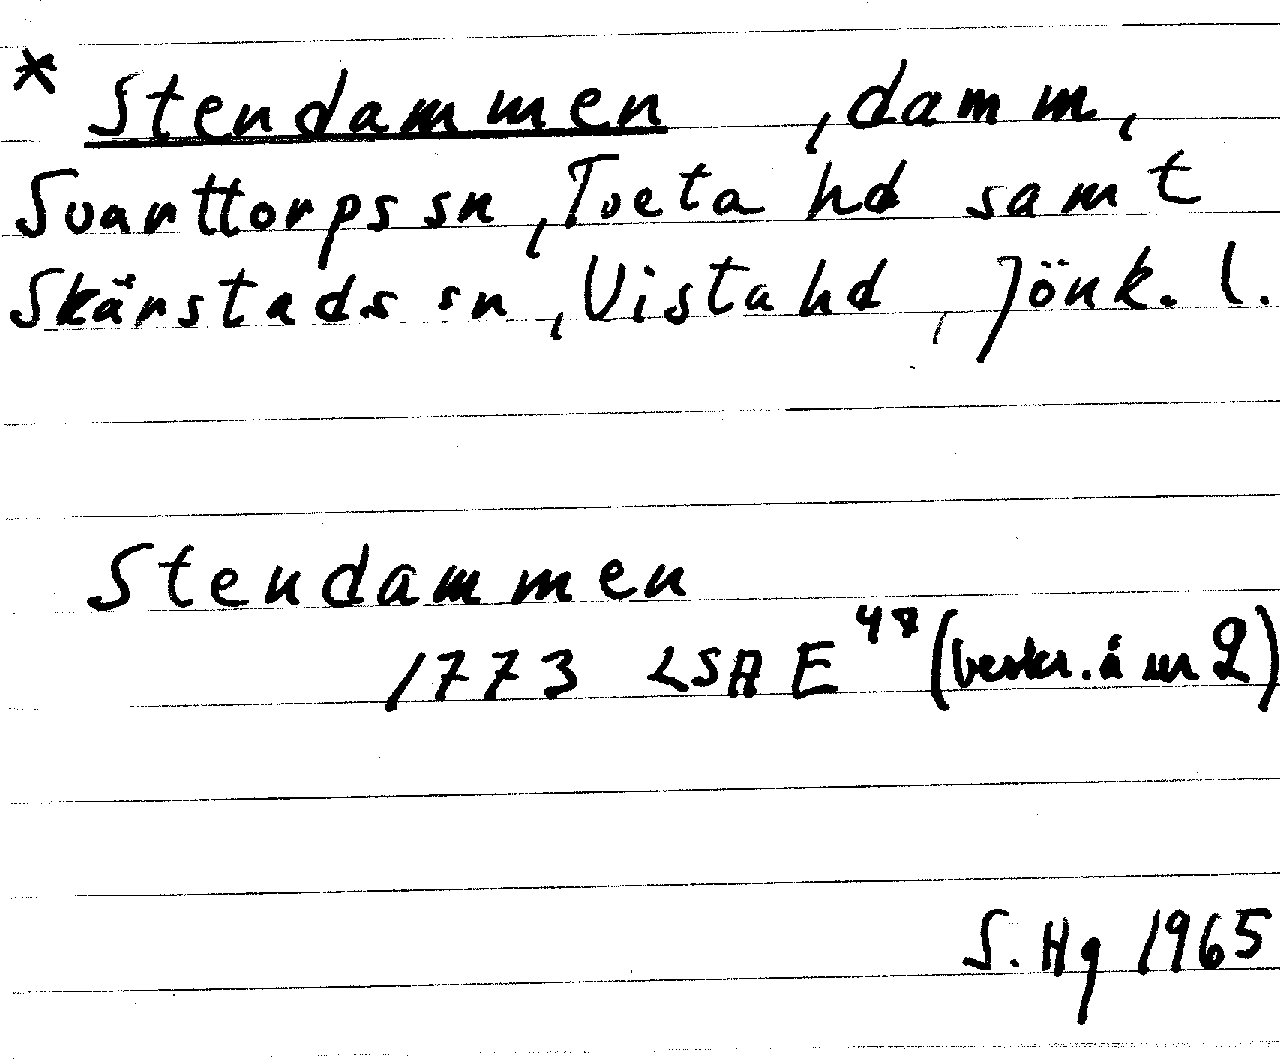 * Stendammen, damm,
Svarttorps sn, Tveta hd samt
Skärstads sn, Vista hd, Jönk. l.
Stendammen
1773 LSA E 47 (beskr. å nr 2)
S. Hg 1965